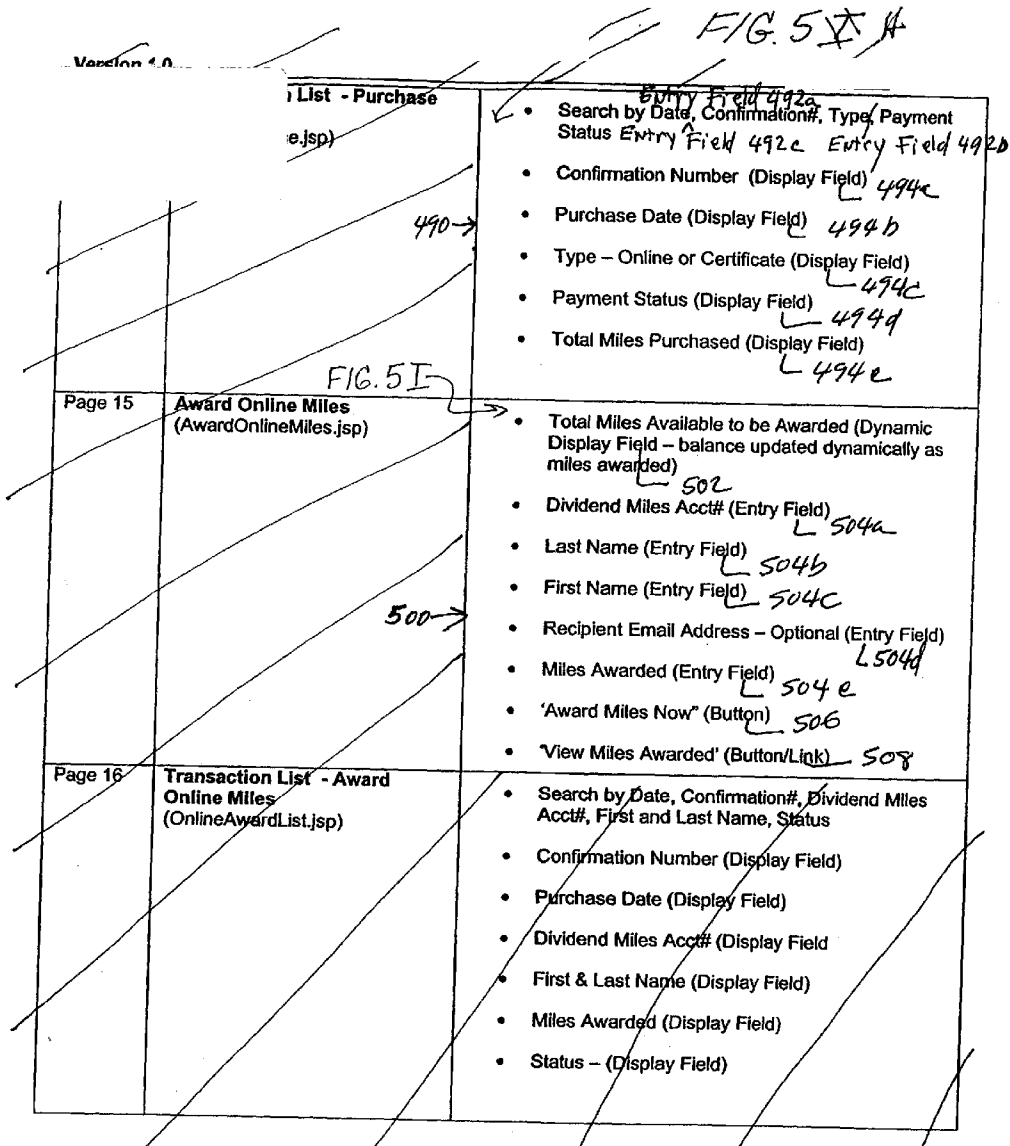 FIG. 5 H
Version 1.0
List - Purchase
e.jsp)
Entry Field 492a
• Search by Date, Confirmation#, Type, Payment
Status Entry Field 492c Entry Field 492b
• Confirmation Number (Display Field) 494c
490
• Purchase Date (Display Field) 494b
• Type – Online or Certificate (Display Field)
494C
• Payment Status (Display Field)
494d
• Total Miles Purchased (Display Field)
494e
FIG. 5I
Page 15
Award Online Miles
(AwardOnlineMiles.jsp)
• Total Miles Available to be Awarded (Dynamic
Display Field – balance updated dynamically as
miles awarded)
502
• Dividend Miles Acct# (Entry Field)
504a
• Last Name (Entry Field)
504b
• First Name (Entry Field) 504C
500
• Recipient Email Address – Optional (Entry Field)
504d
• Miles Awarded (Entry Field)
504e
• 'Award Miles Now" (Button) 506
• 'View Miles Awarded' (Button/Link) 508
Page 16
Transaction List - Award
Online Miles
(OnlineAwardList.jsp)
• Search by Date, Confirmation#, Dividend Miles
Acct#, First and Last Name, Status
• Confirmation Number (Display Field)
• Purchase Date (Display Field)
• Dividend Miles Acct# (Display Field
• First & Last Name (Display Field)
• Miles Awarded (Display Field)
• Status – (Display Field)